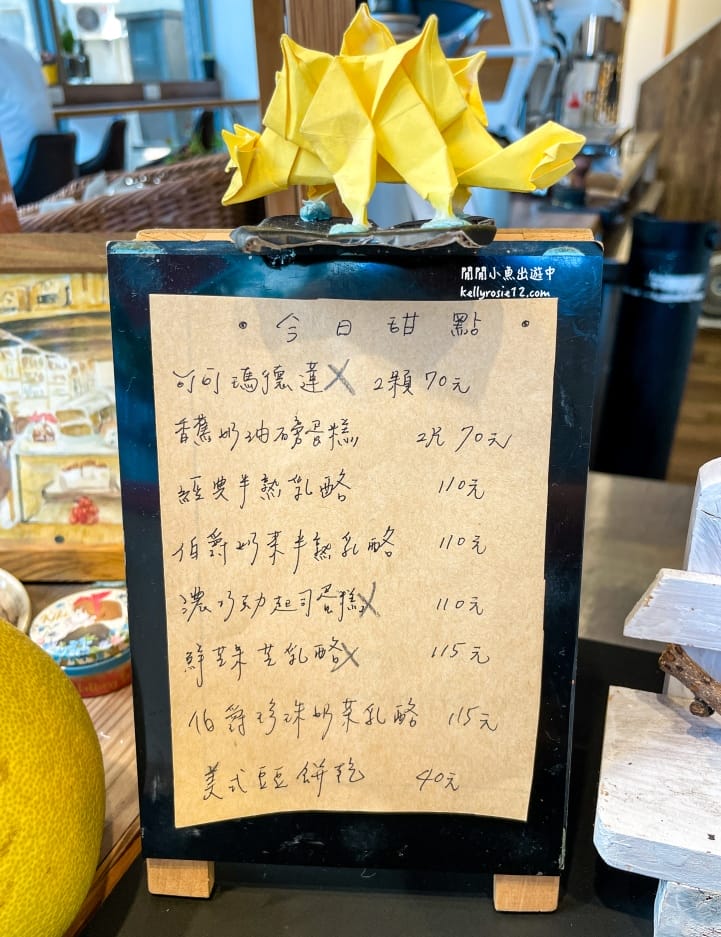 閒閒小魚出遊中
kellyrosie12.com
• 今日甜點 •
可可瑪德蓮X 2顆 70元
香蕉奶油磅蛋糕 2片 70元
經典半熟乳酪 110元
伯爵奶茶半熟乳酪 110元
濃巧克力起司蛋糕X 110元
鮮 乳酪X 115元
伯爵珍珠奶茶乳酪 115元
美式豆豆餅乾 40元